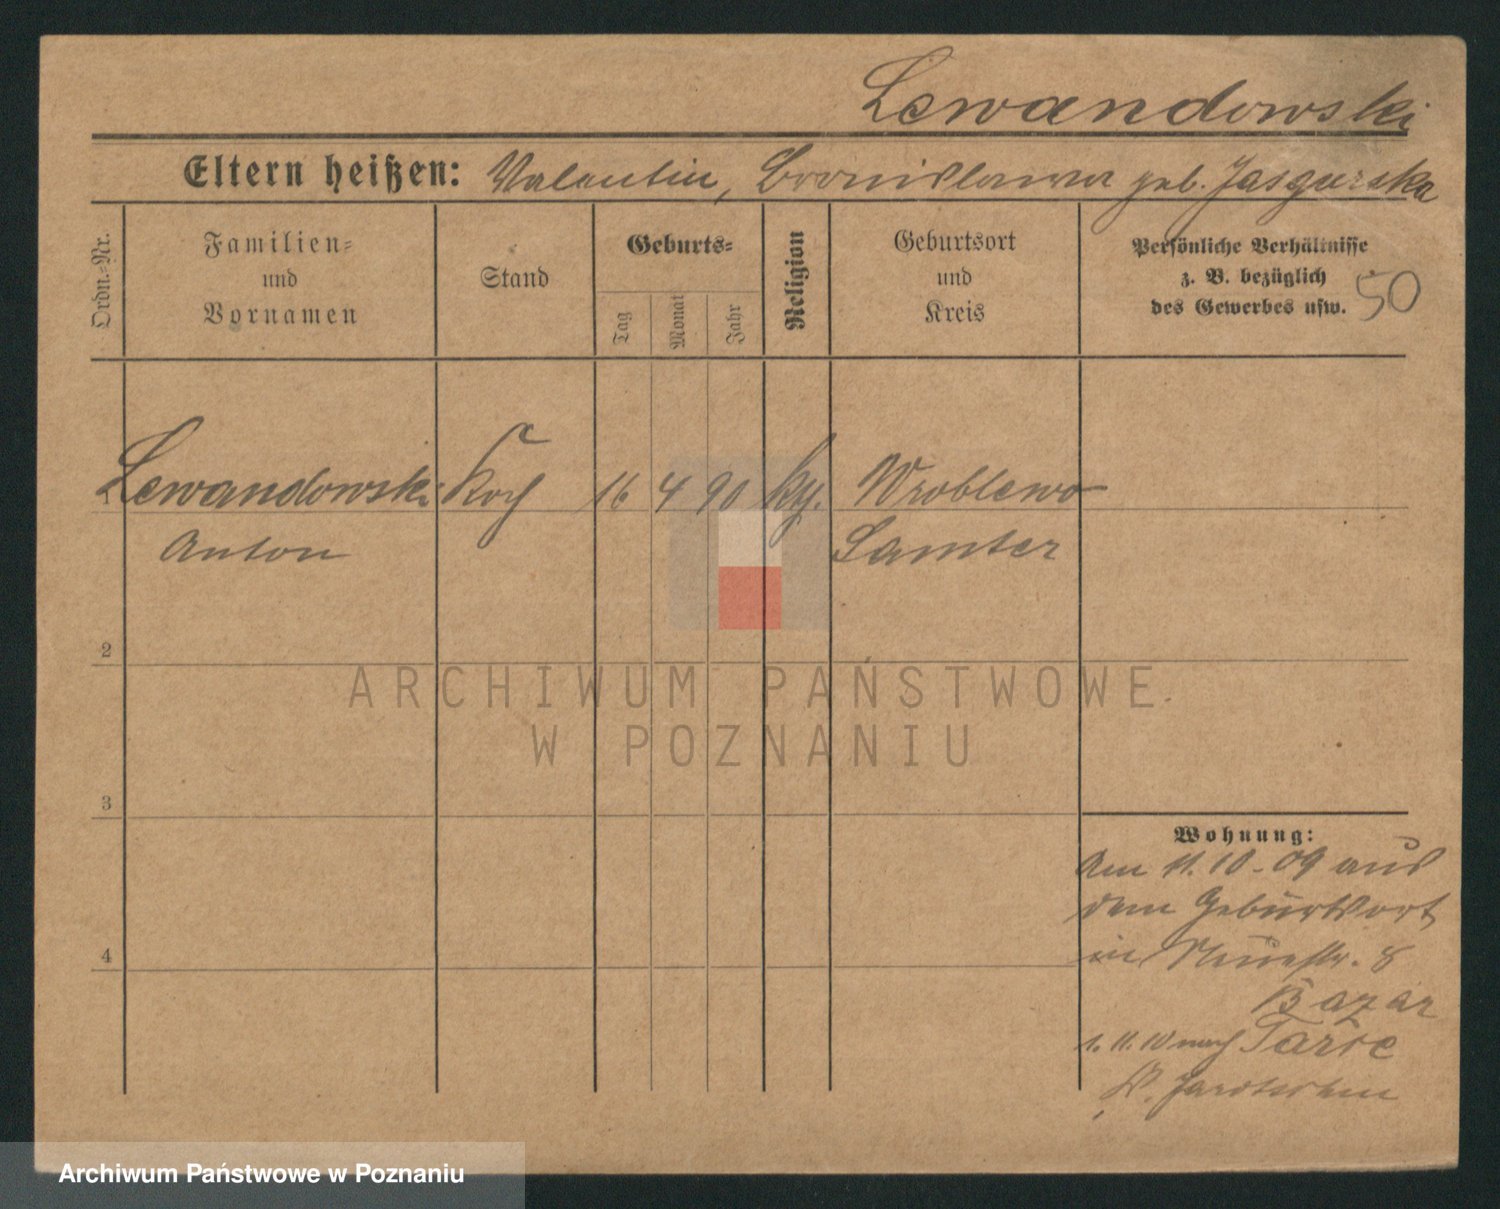 Lewandowski
Eltern heißen: Valentin, Bronislawa geb. Jasgurska
Ordn.=Nr.
Familien=
und
Vornamen
Stand
Geburts=
Tag
Monat
Jahr
Religion
Geburtsort
und
Kreis
Persönliche Verhältnisse
z. B. bezüglich
des Gewerbes usw.
50
1 Lewandowski Koch 16 4 90 kth. Wroblewo
Anton Samter
2
ARCHIWUM PAŃSTWOWE
W POZNANIU
3
Wohnung:
Am 11.10-09 aus
dem Geburtsort
in 8
Bazar
1.11.10 nach Tarce
K. Jarotschin
4
Archiwum Państwowe w Poznaniu